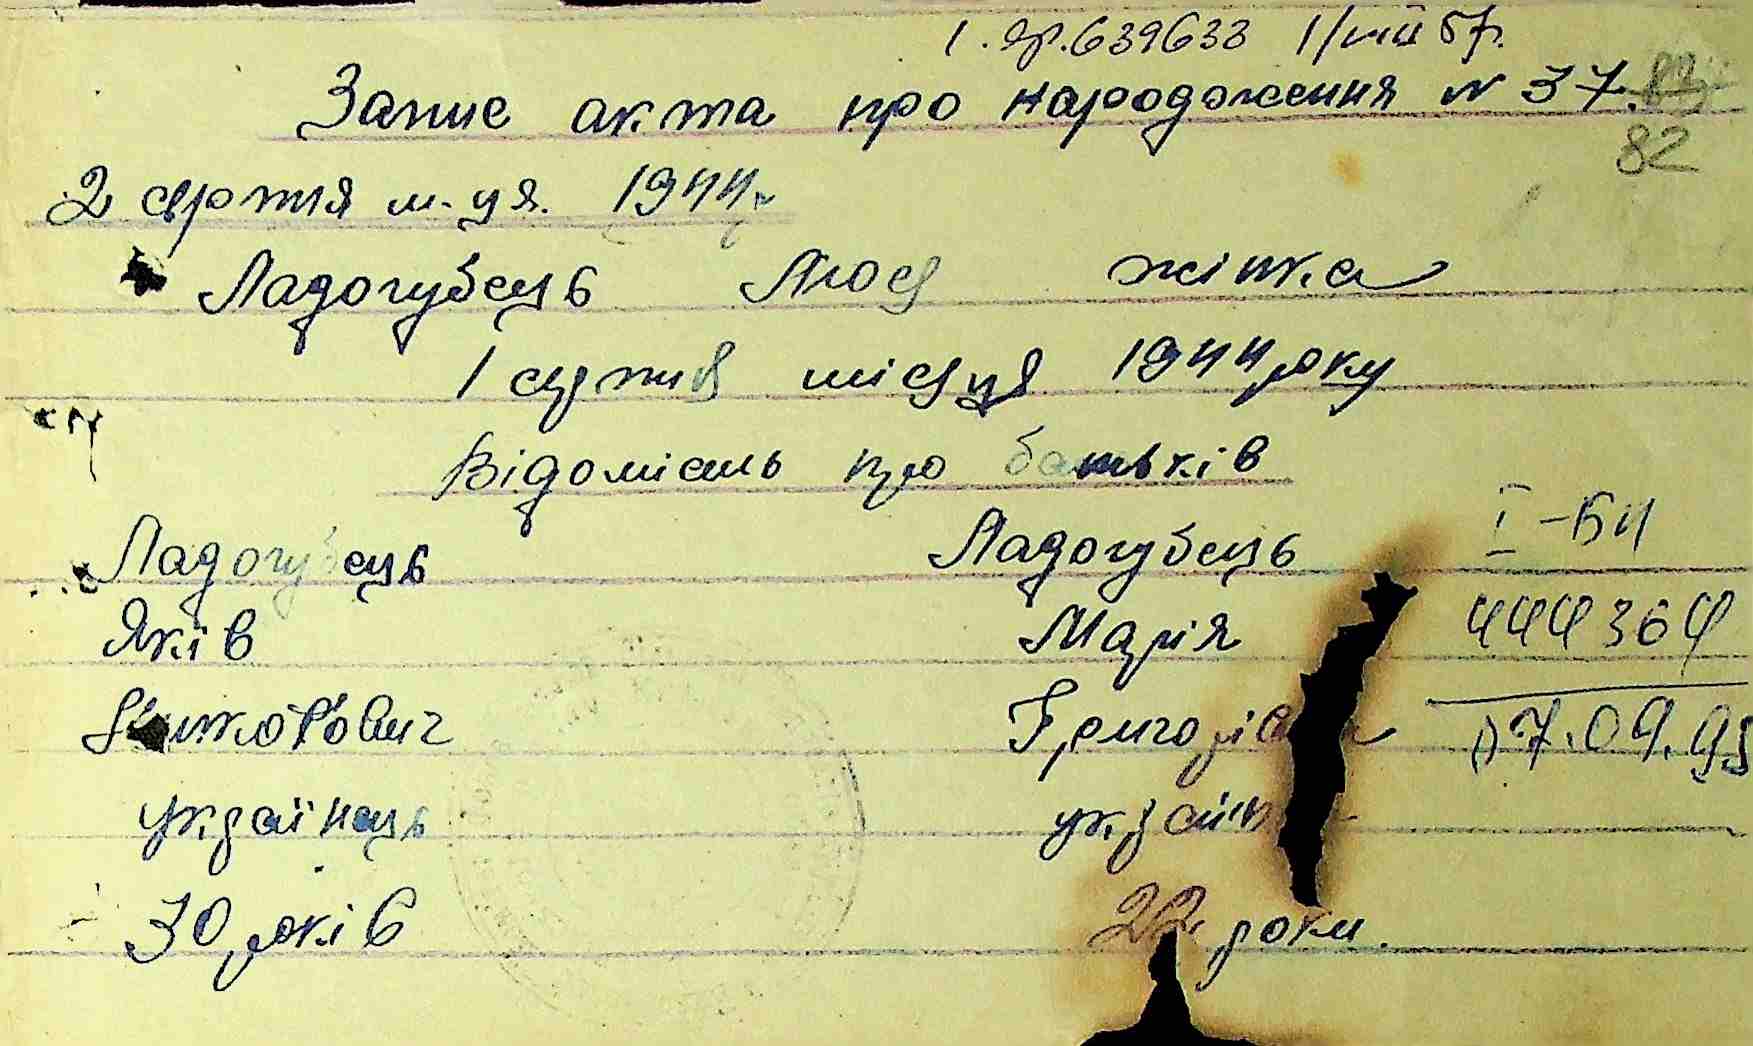 1. яр. 639633 1/VIII 57р.
Запис акта про народження № 37.
82
2 серпня м-ця. 1944р.
Ладогубець Люся жінка
1 серпня місяця 1944 року
Відомість про батьків
I-БП
Ладогубець Ладогубець
Яків Марія 444364
Григорівна 07.09.95
українець україн
30 років 22 роки.